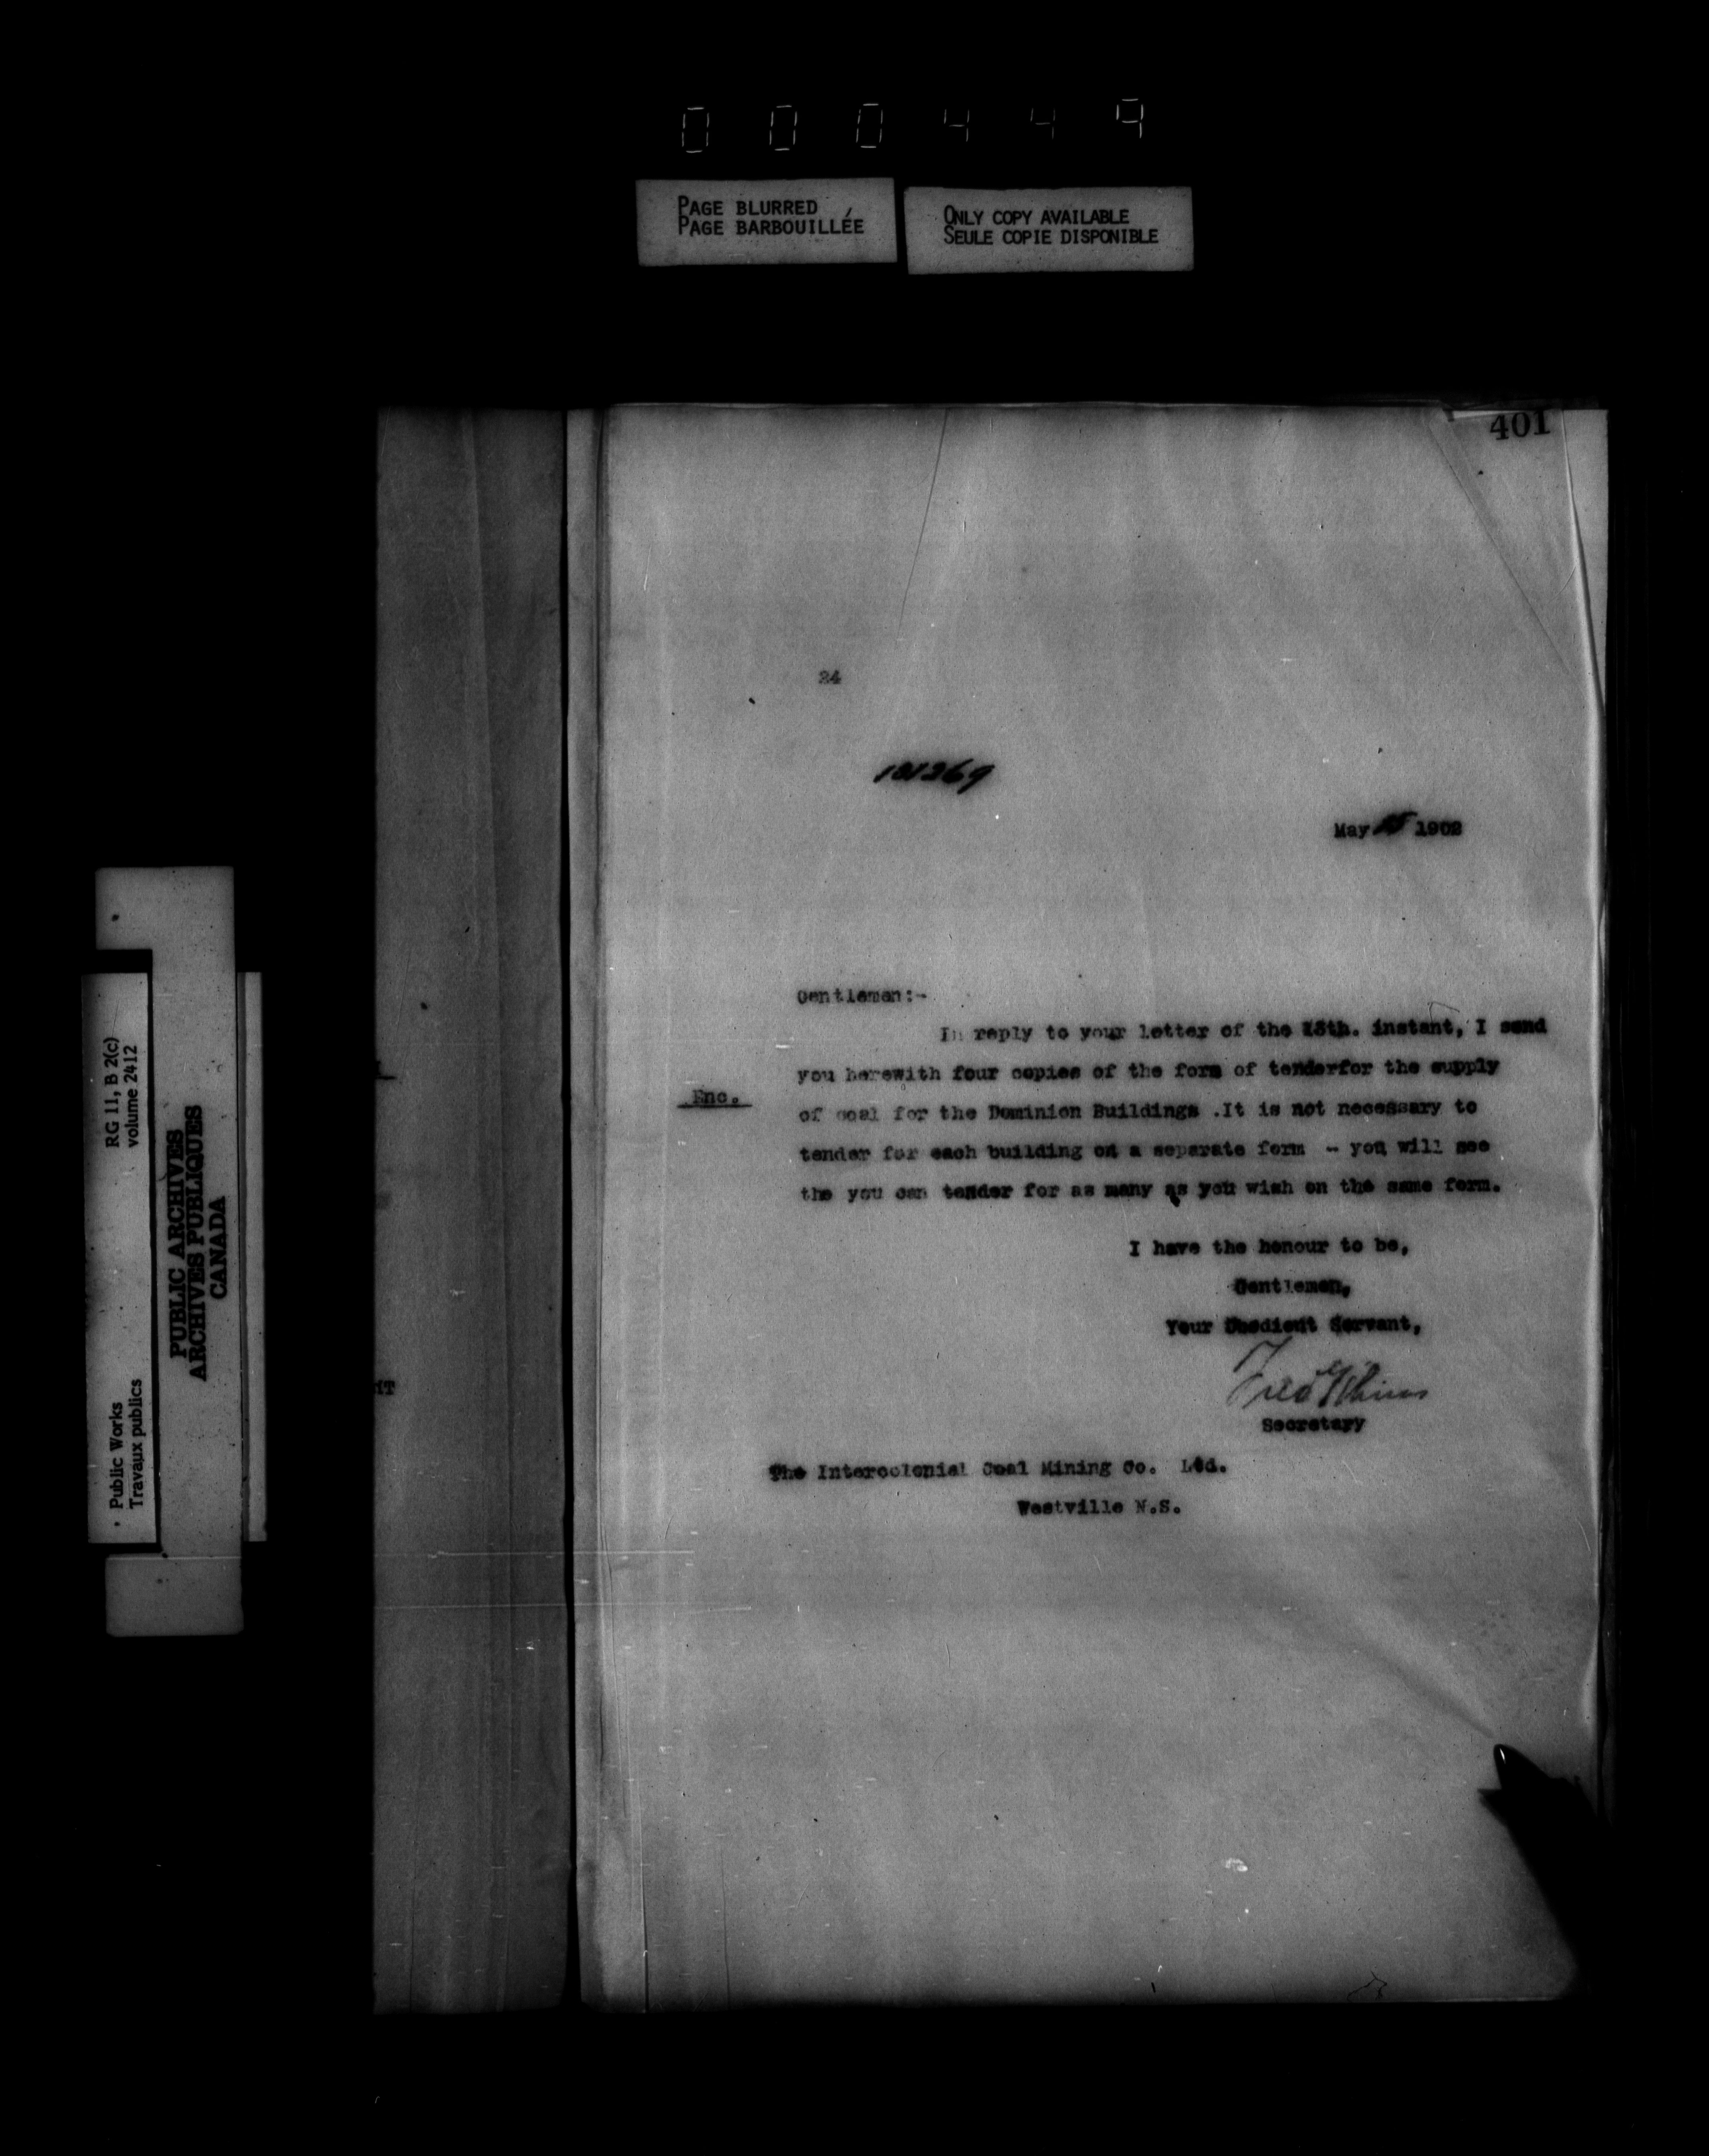 000449
PAGE BLURRED
PAGE BARBOUILLÉE
ONLY COPY AVAILABLE
SEULE COPIE DISPONIBLE
401
24
May 15 1902
Gentlemen:-
In reply to your letter of the 13th. instant, I send
you herewith four copies of the form of tenderfor the supply
Enc.
of coal for the Dominion Buildings .It is not necessary to
tender for each building on a separate form - you will see
the you can tender for as many as you wish on the same form.
I have the honour to be,
Gentlemen,
Your Obedient Servant,
Secretary
The Intercolonial Coal Mining Co. Ltd.
Westville N.S.
RG 11, B 2(c)
volume 2412
Public Works
Travaux publics
PUBLIC ARCHIVES
ARCHIVES PUBLIQUES
CANADA